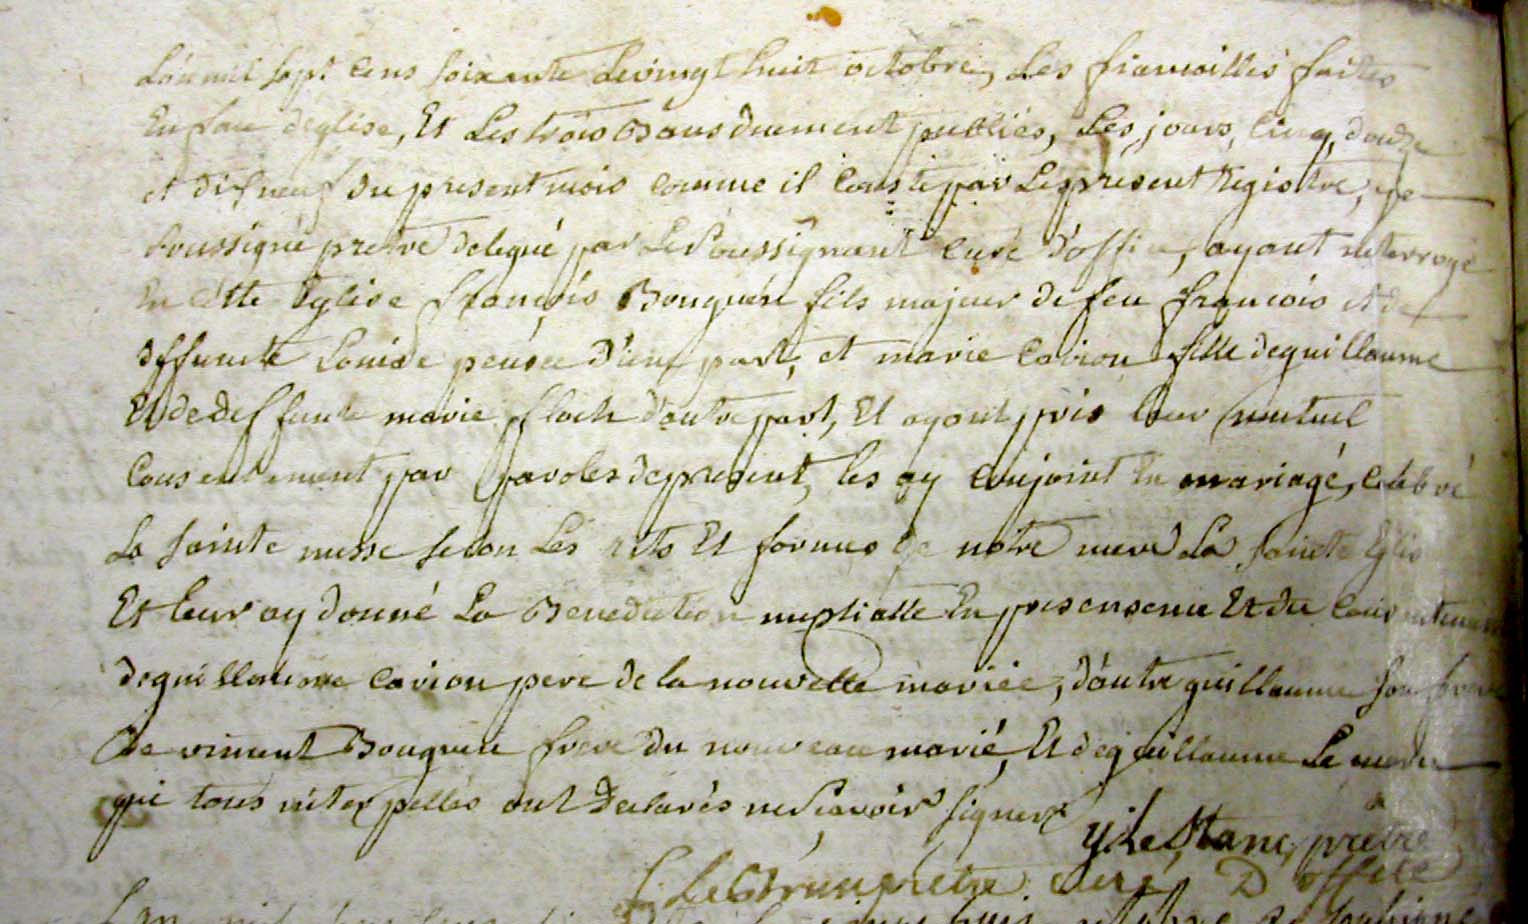 L'an mil sept cens soixante Le vingt huit octobre, Les fiancailles faites
En face d'eglise, Et Les trois Bans duement publiés, Les jours cinq, douze
et dixneuf du present mois comme il conste par Le present Registre, je
soussigné pretre delegué par Le soussignant curé d'office, ayant interrogé
En cette Eglise françois Bouguen fils majeur de feu françois et de
deffuncte Louise d'une part, et marie Cavion fille de guillaume
Et de deffunte marie floch d'autre part, Et ayant pris leur mutuel
consentement par paroles de present, les ay conjoint en mariage, celebré
La sainte messe selon Les rits Et formes de notre mere La sainte Eglise
Et leur ay donné La Benediction nuptialle En presence Et du consentement
de guillaume Cavion pere de la nouvelle mariée, d'autre guillaume son frere
De vincent Bouguen frere du nouveau marié, Et de guillaume Le
qui tous interpellés ont Declarés ne sçavoir signer
y: Le Stanc, prêtre
prêtre curé D'office
L'an mil sept cens